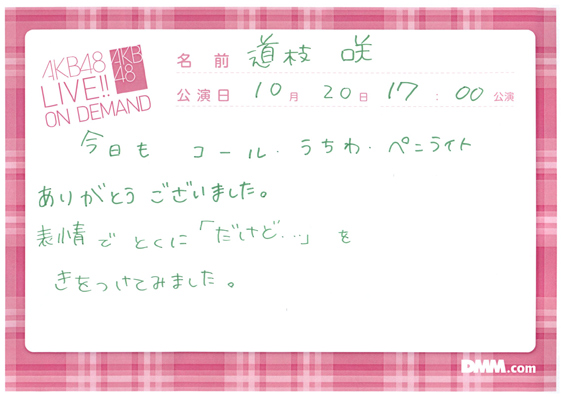 AKB48
LIVE!!
ON DEMAND
AKB
48
名前 道枝 咲
公演日 10月 20日 17:00 公演
今日も コール・うちわ・ペンライト
ありがとうございました。
表情で とくに「だけど…」を
きをつけてみました。
DMM.com